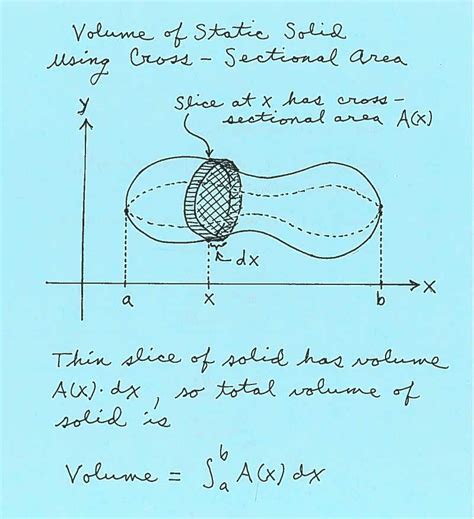 Volume of Static Solid
Using Cross-Sectional Area
y
Slice at x has cross-
sectional area A(x)
dx
a
x
b
x
Thin slice of solid has volume
A(x)·dx, so total volume of
solid is
Volume = ∫_a^b A(x) dx